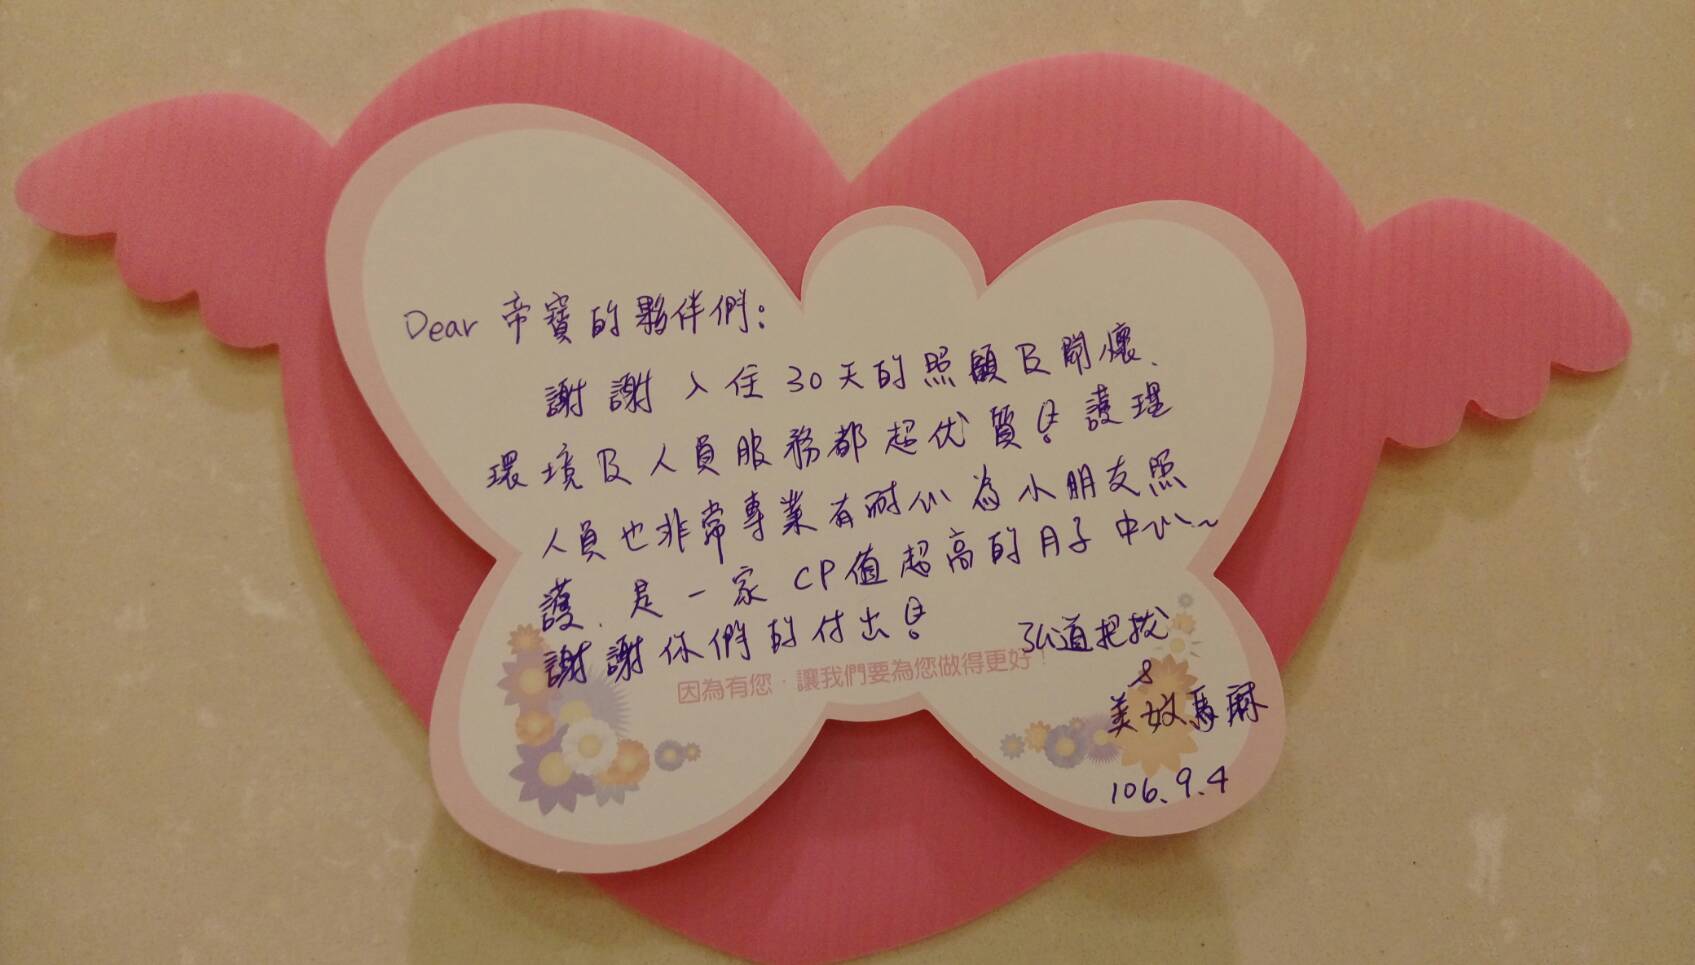 Dear 帝寶的夥伴們:
謝謝入住30天的照顧及關懷、
環境及人員服務都超优質!護理
人員也非常專業有耐心為小朋友照
護、是一家CP值超高的月子中心~
謝謝你們的付出!
因為有您,讓我們要為您做得更好!
弘道把拔
&
美妏馬麻
106.9.4